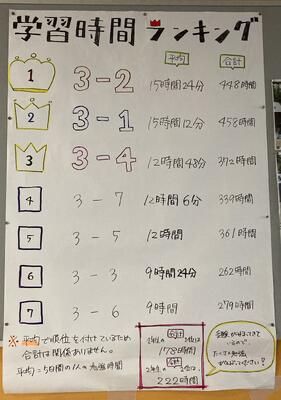 学習時間ランキング
平均 合計
1 3-2 15時間24分 448時間
2 3-1 15時間12分 458時間
3 3-4 12時間48分 372時間
4 3-7 12時間6分 339時間
5 3-5 12時間 361時間
6 3-3 9時間24分 262時間
7 3-6 9時間 279時間
※平均で順位を付けているため
合計は関係ありません。
平均=5日間の1人の勉強時間
1年生の合計1位は
177時間
2年生の合計1位は、
222時間
たくさん勉強
がんばってください!